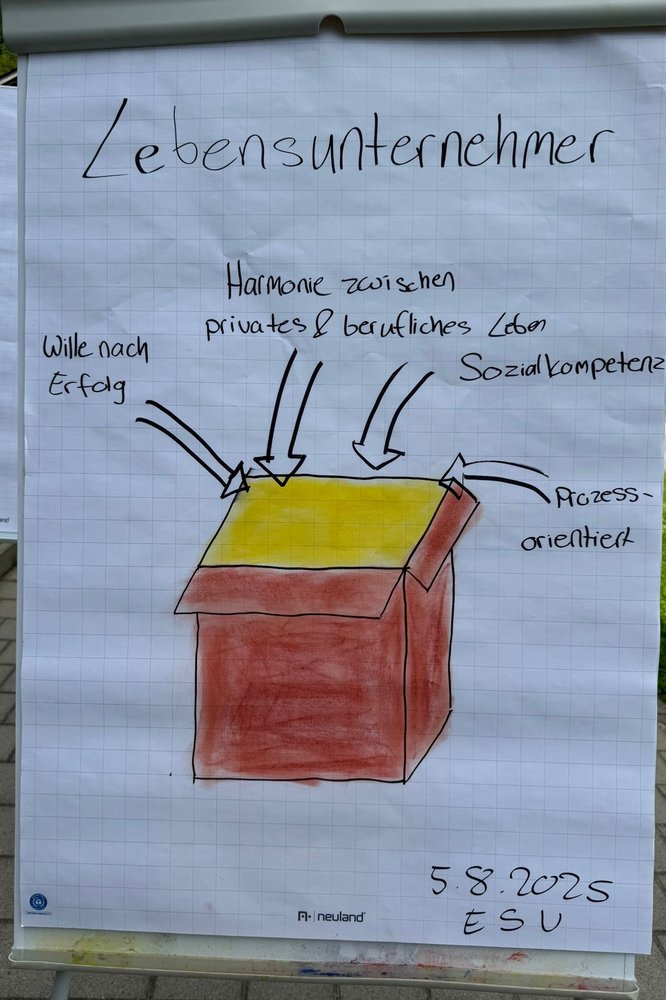 Lebensunternehmer
Harmonie zwischen
privates & berufliches Leben
Wille nach
Erfolg
Sozialkompetenz
Prozess-
orientiert
5.8.2025
ESU
neuland